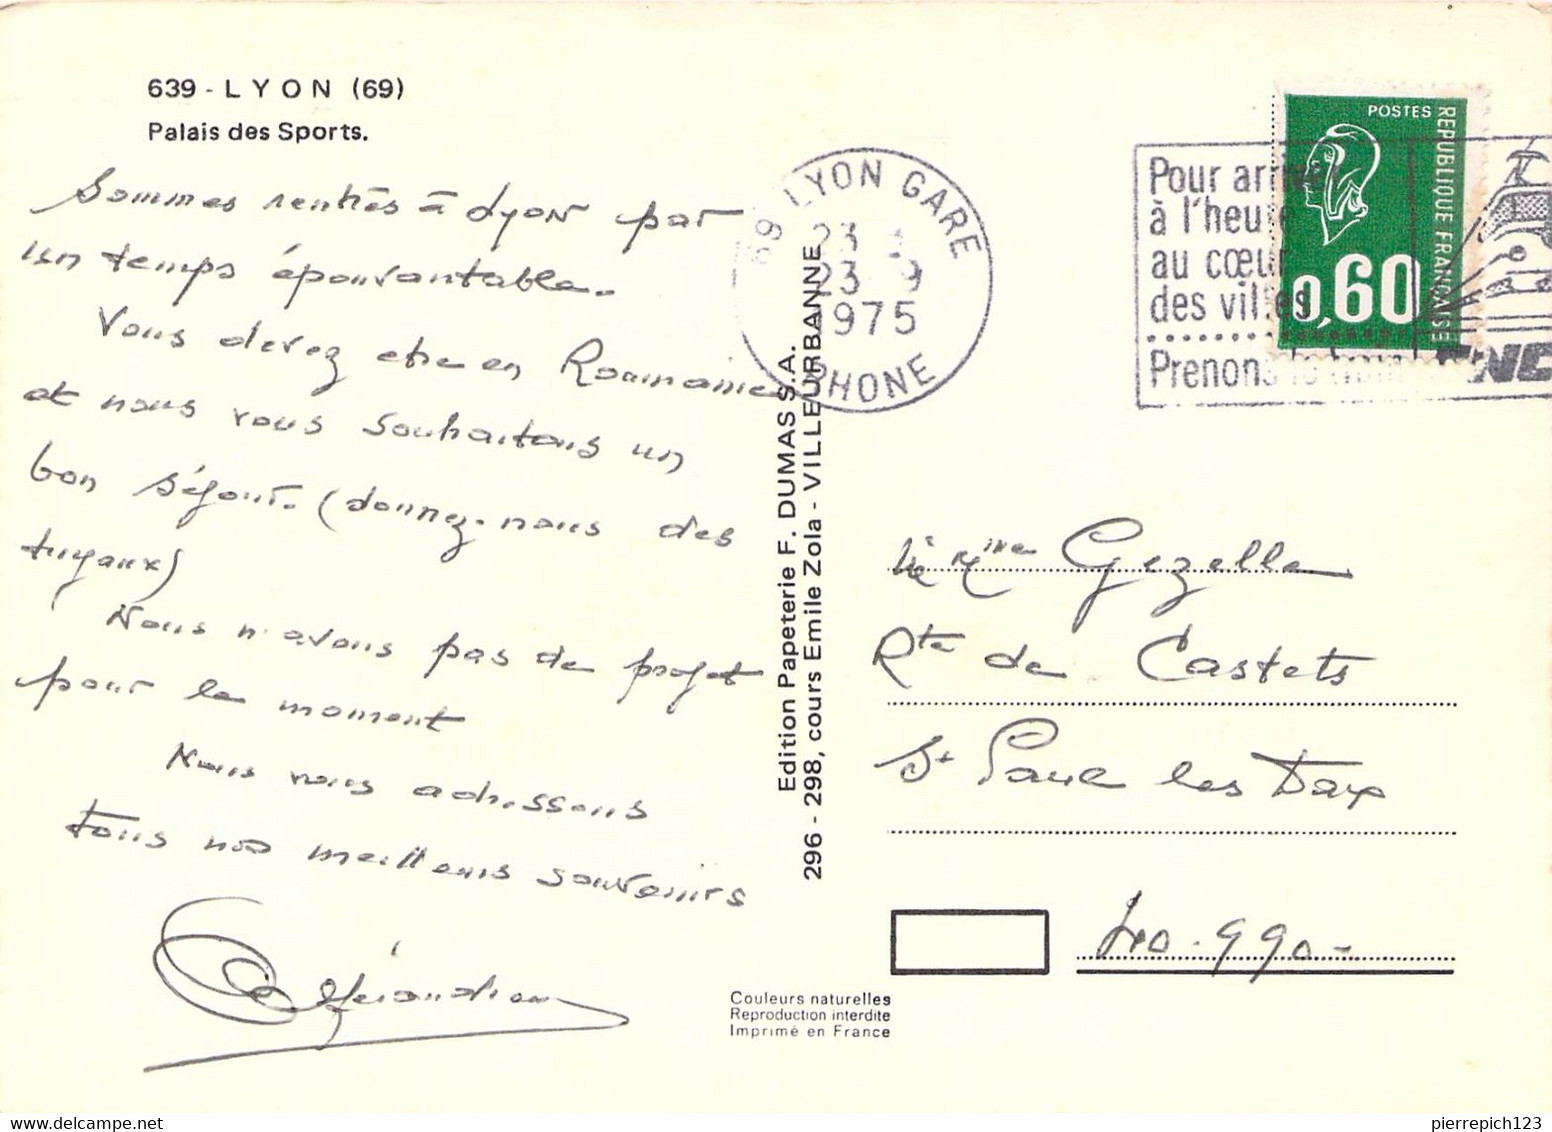 639 - LYON (69)
Palais des Sports.
Sommes rentrés à Lyon par
un temps épouvantable.
Vous devez être en Roumanie
et nous vous souhaitons un
bon séjour. (donnez-nous des
tuyaux)
Nous n'avons pas de projet
pour le moment
Nous vous adressons
tous nos meilleurs souvenirs
Edition Papeterie F. DUMAS S.A.
296 - 298, cours Emile Zola - VILLEURBANNE
69 LYON GARE
23
23 9
1975
RHONE
Pour arriver
à l'heure
au cœur
des villes
Prenons le train
POSTES
REPUBLIQUE FRANÇAISE
0,60
Mme Gezelle
Rte de Castets
St Paul les Dax
40.990-
Couleurs naturelles
Reproduction interdite
Imprimé en France
pierrepich123